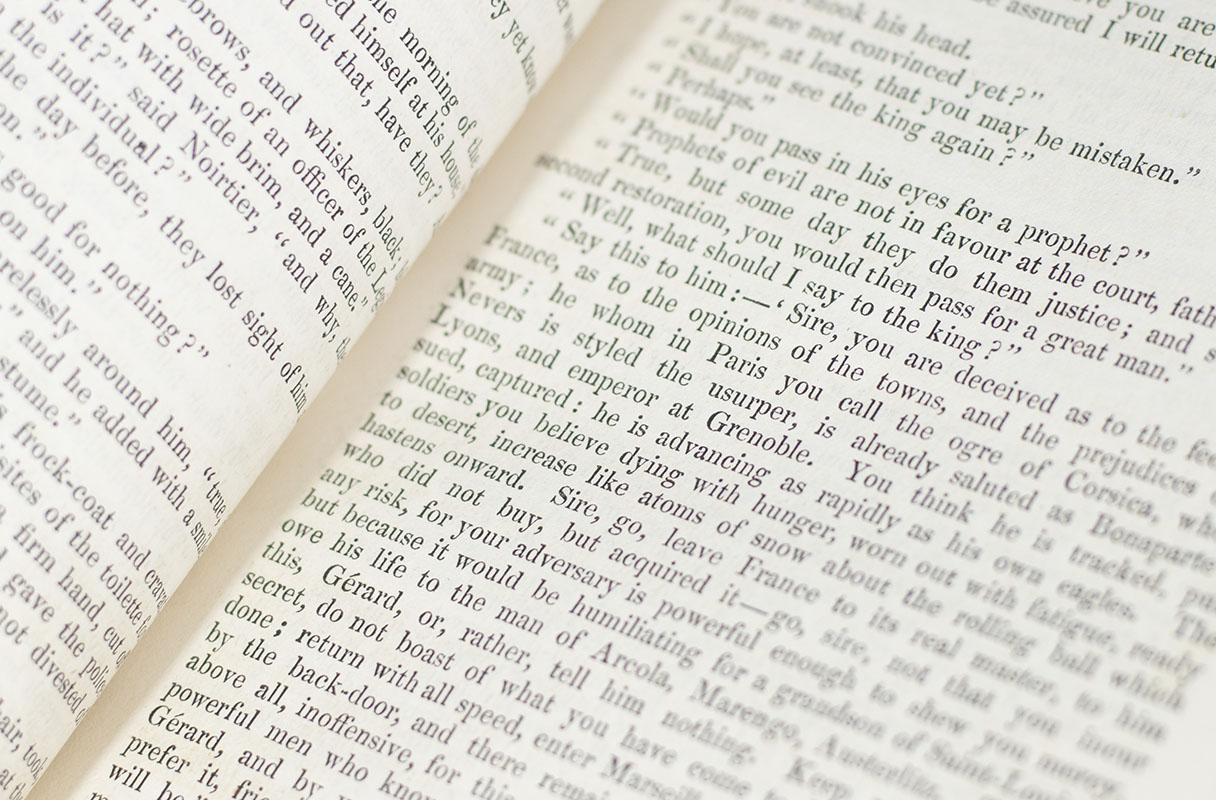 the morning of the
cey yet know
ed himself at his house
d out that, have they?
brows, and whiskers, black,
; rosette of an officer of the
hat with wide brim, and a cane."
is it?" said Noirtier, "and why, the
the individual?"
the day before, they lost sight of him
on."
good for nothing?"
on him."
relessly around him, "true,
" and he added with a
stume."
frock-coat and
sites of the toilette
a firm hand, cut
gave the
not divested
hair, took
at the
you are
be assured I will retu
shook his head.
"You are not convinced yet?"
"I hope, at least, that you may be mistaken."
"Shall you see the king again?"
"Perhaps."
"Would you pass in his eyes for a prophet?"
"Prophets of evil are not in favour at the court, fath
"True, but some day they do them justice; and s
second restoration, you would then pass for a great man."
"Well, what should I say to the king?"
"Say this to him:—'Sire, you are deceived as to the fee
France, as to the opinions of the towns, and the prejudices o
army; he whom in Paris you call the ogre of Corsica, wh
Nevers is styled the usurper, is already saluted as Bonaparte
Lyons, and emperor at Grenoble. You think he is tracked, pur
sued, captured: he is advancing as rapidly as his own eagles. The
soldiers you believe dying with hunger, worn out with fatigue, ready
to desert, increase like atoms of snow about the rolling ball which
hastens onward. Sire, go, leave France to its real master, to him
who did not buy, but acquired it—go, sire, not that you incur
any risk, for your adversary is powerful enough to shew you mercy,
but because it would be humiliating for a grandson of Saint-Louis
owe his life to the man of Arcola, Marengo, Austerlitz.
this, Gérard, or, rather, tell him nothing. Keep
secret, do not boast of what you have come to
done; return with all speed, enter Marseill
by the back-door, and there remain
above all, inoffensive, for this
powerful men who know
Gérard, and by
prefer it, frie
will be